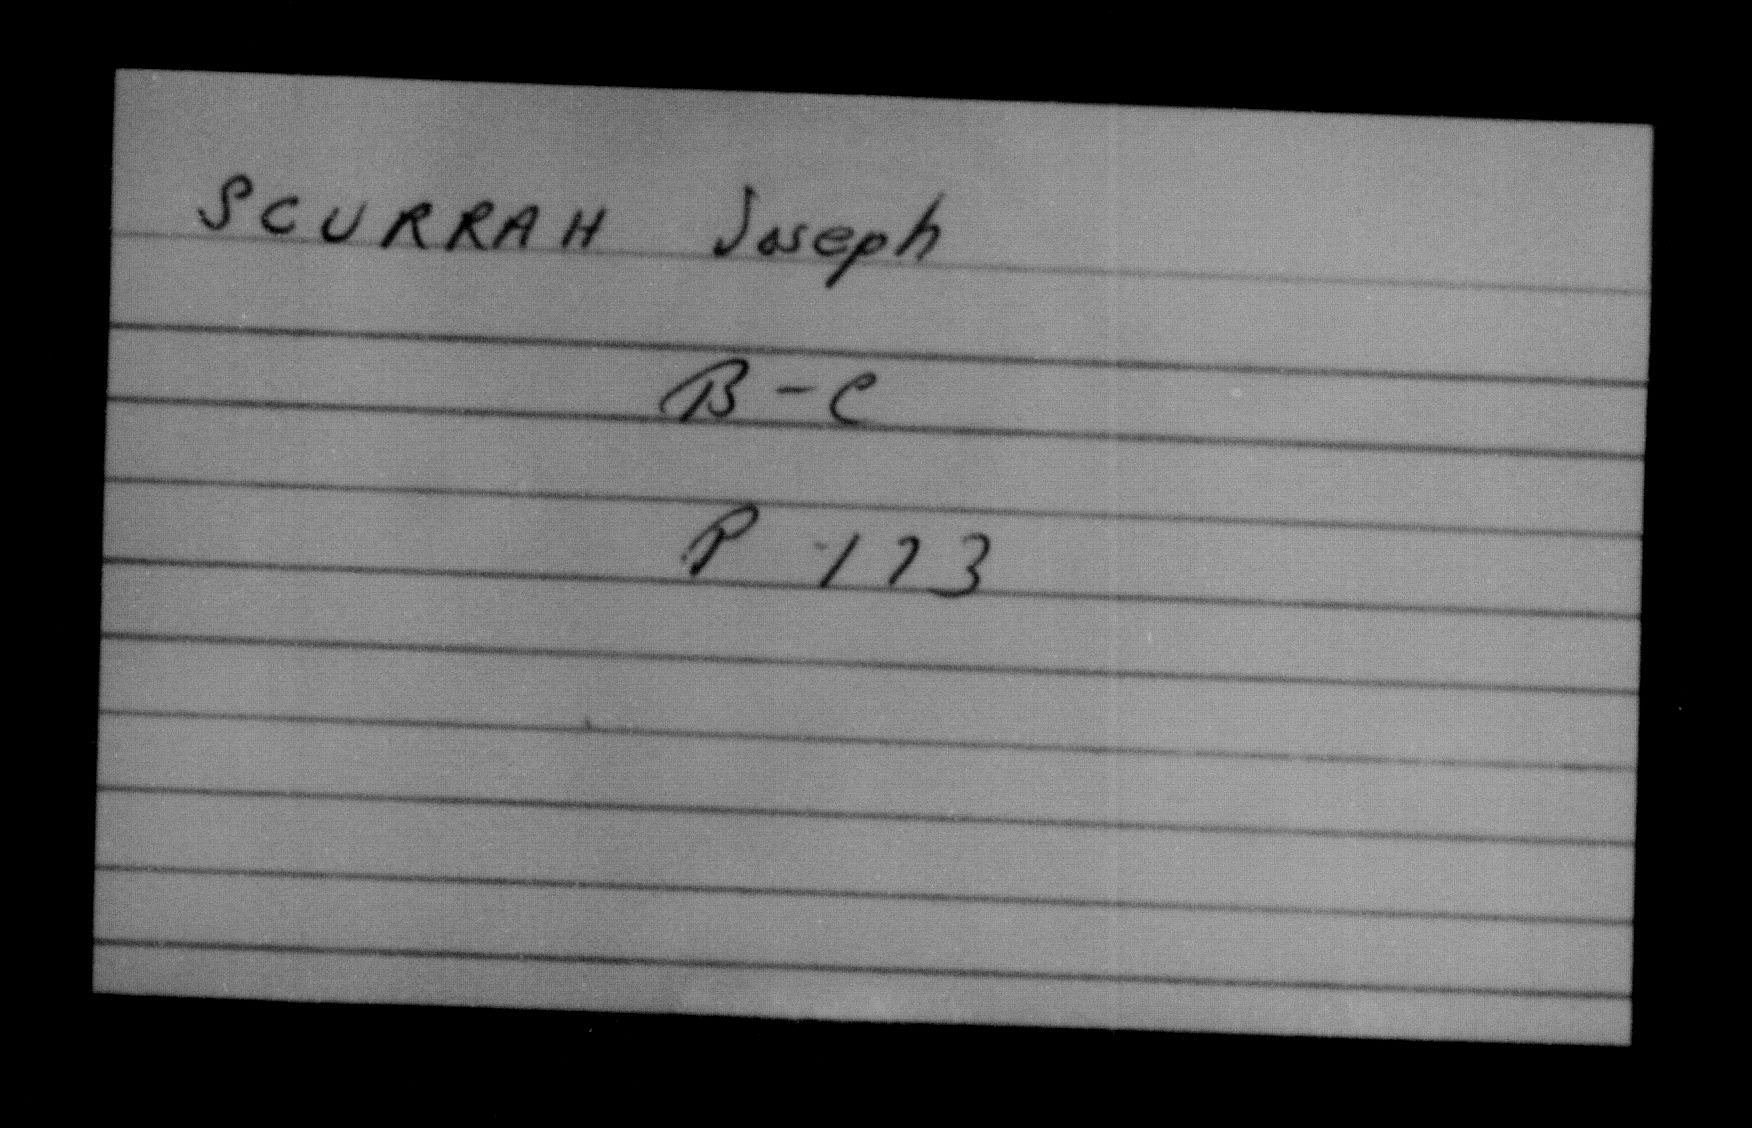 SCURRAH Joseph
B-C
P 173